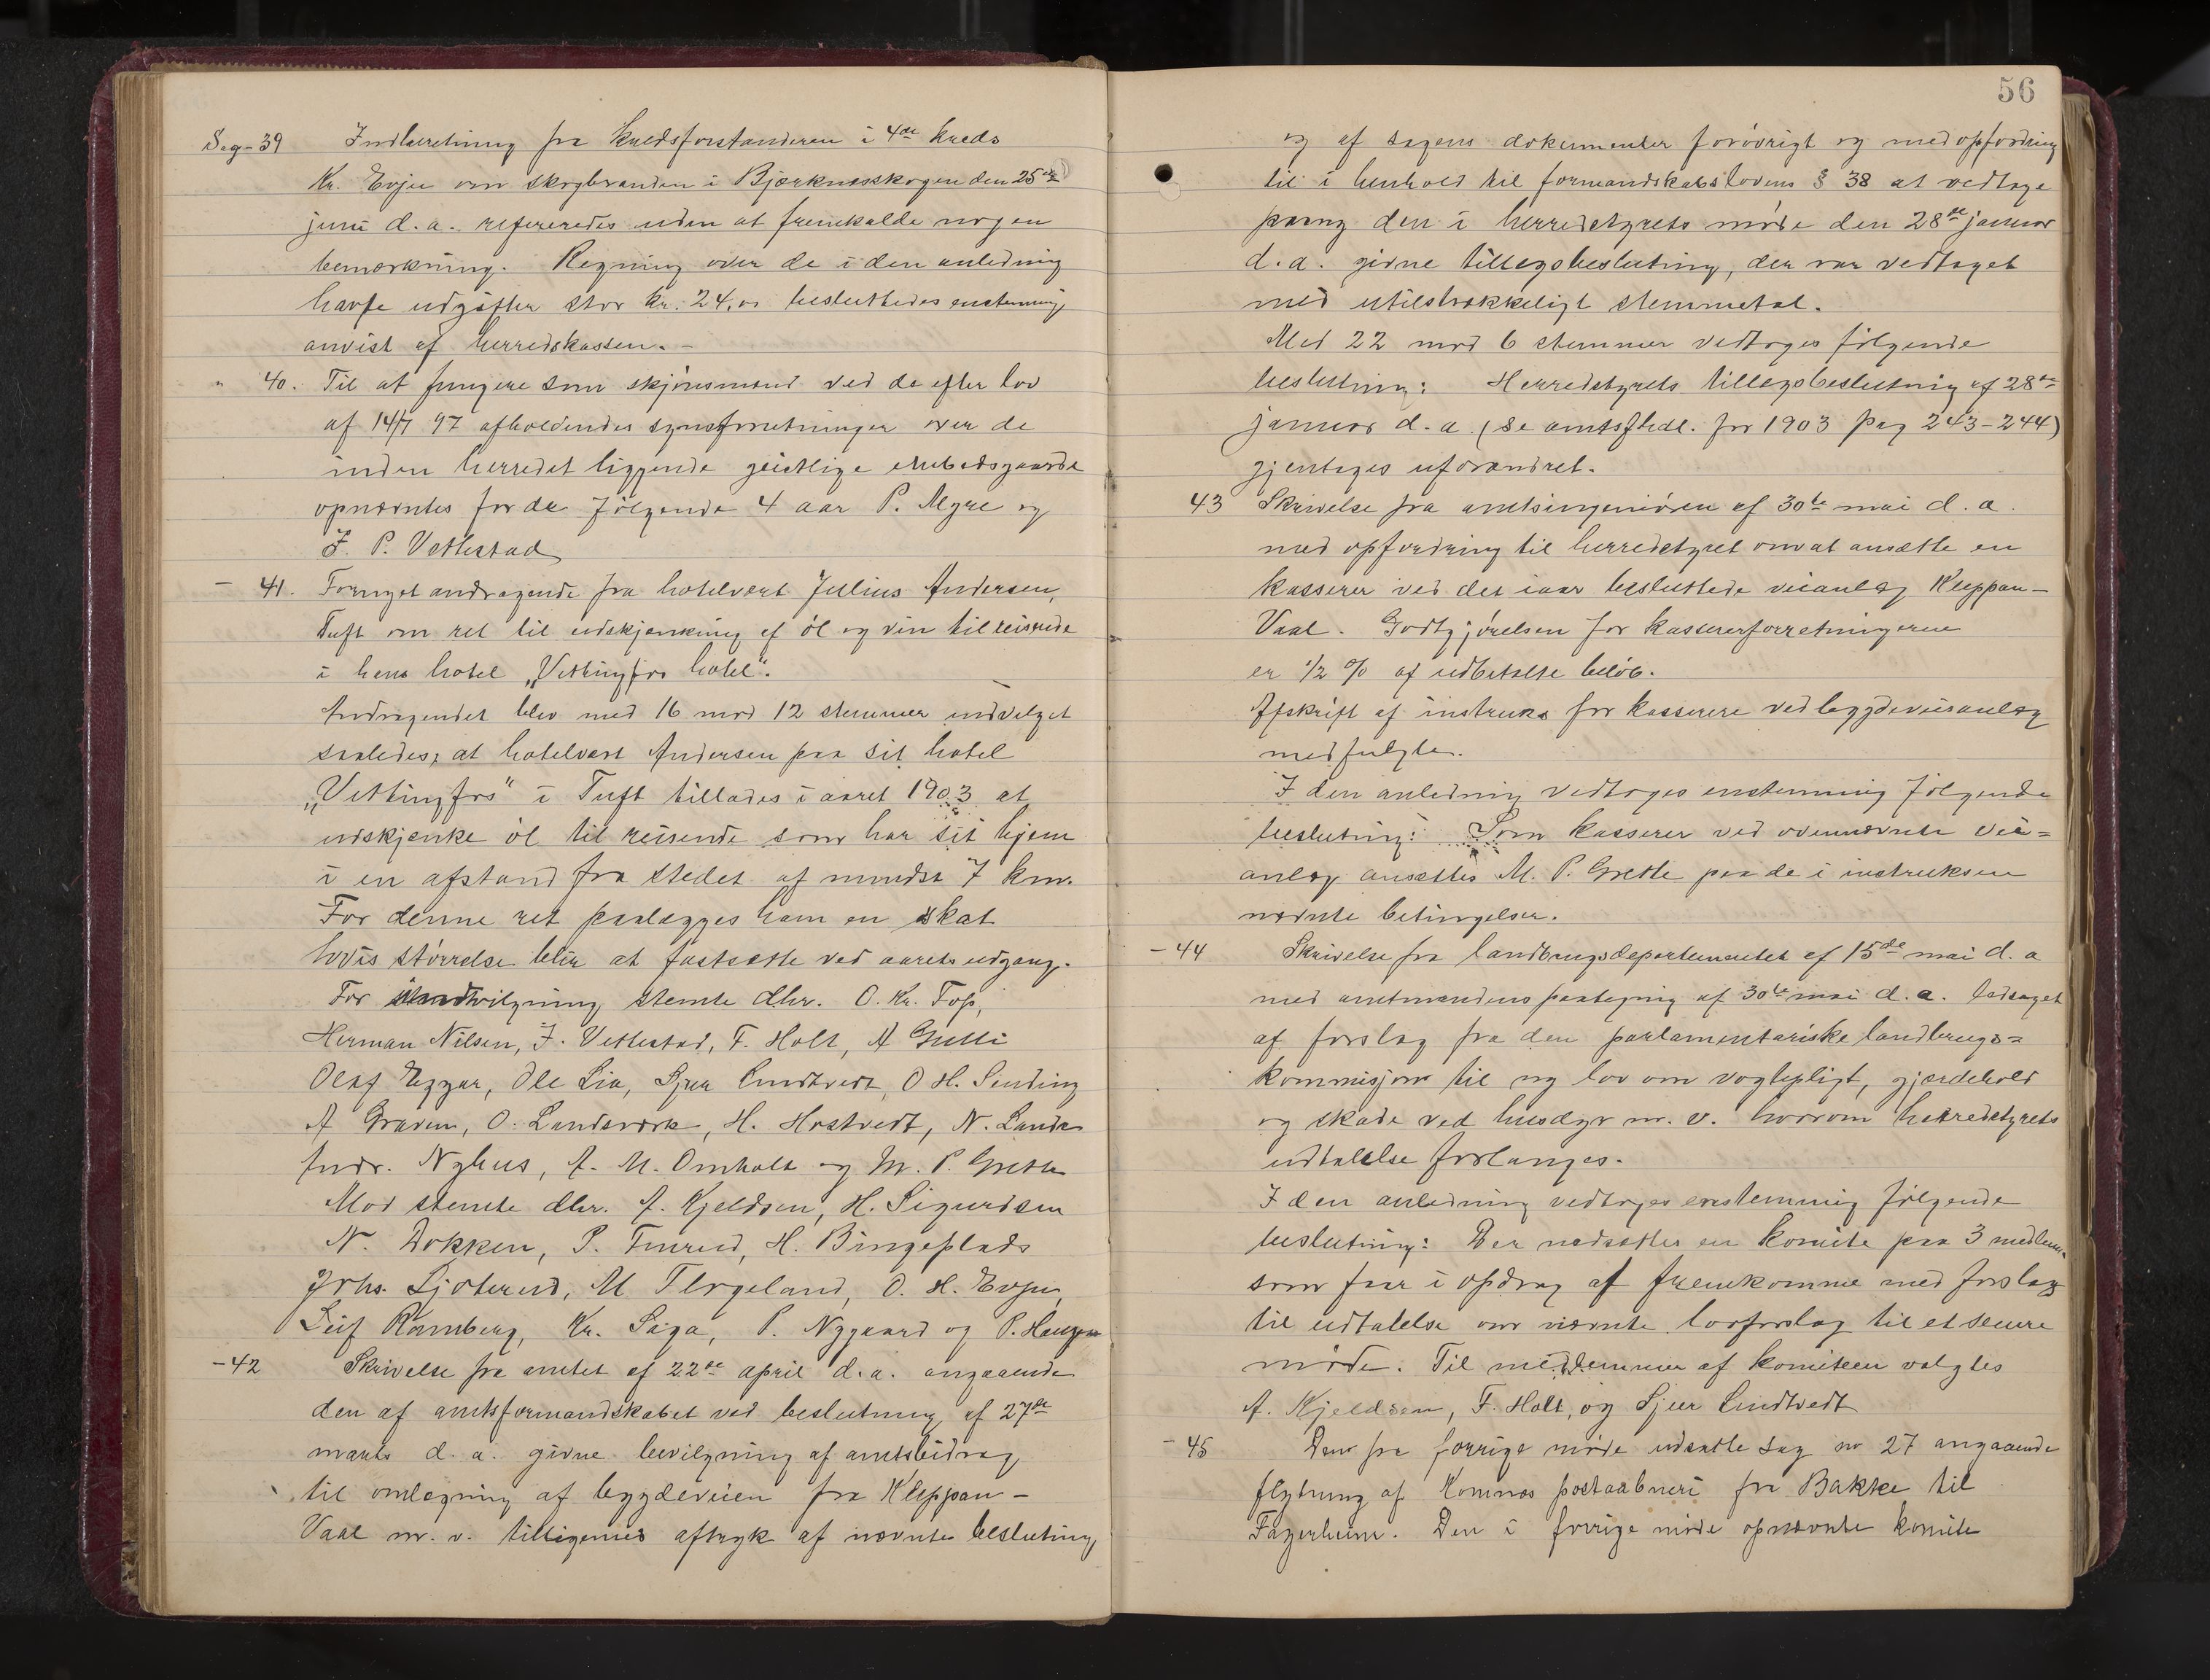 Sag-39 Indberetning fra kredsforstanderen i 4de kreds
Kr. Evju om skogbranden i Bjørknesskogen den 25de
juni d.a. refereredes uden at fremkalde nogen
bemærkning. Regning over de i den anledning
havte udgifter stor kr. 24,00 besluttedes enstemmig
anvist af herredskassen. -
" 40. Til at fungere som skjønsmænd ved de efter lov
af 14/7 97 afholdendes synsforretninger over de
inden herredet liggende geistlige embedsgaarde
opnævntes for de følgende 4 aar P. Myre og
J. P. Vettestad
- 41. Fornyet andragende fra hotelvært Julius Andersen,
Tuft om ret til udskjænkning af øl og vin til reisende
i hans hotel „Vittingfos hotel".
Andragendet blev med 16 mod 12 stemmer indvilget
saaledes, at hotelvært Andersen paa sit hotel
„Vittingfos" i Tuft tillades i aaret 1903 at
udskjænke øl til reisende som har sit hjem
i en afstand fra stedet af mindst 7 km.
For denne ret paalægges ham en skat
hvis størrelse blir at fastsætte ved aarets udgang.
For indvilgning stemte dhr. O. Kr. Fos,
Herman Nilsen, J. Vettestad, F. Holt, A Gulli
Olaf Eggar, Ole Lia, Sjur Lindtvedt, O H. Sending
A Graven, O. Landsværk, H. Hostvedt, N. Lande
Andr. Nyhus, A. M. Omholt og M. P. Grette
Mod stemte dhr. A. Kjeldsen, H. Sigurdsen
N. Dokken, P. Furud, H. Bingeplads
Johs. Ljoterud, M Flogeland, O. H. Evju,
Leif Ramberg, Kr. Saga, P. Nygaard og P. Haugan
- 42 Skrivelse fra amtet af 22de april d.a. angaaende
den af amtsformandskabet ved beslutning af 27de
marts d.a. givne bevilgning af amtsbidrag
til omlægning af bygdeveien fra Kleppan -
Vaal m. v. tilligemed aftryk af nævnte beslutning
56
og af sagens dokumenter forøvrigt og med opfordring
til i henhold til formandskabslovens § 38 at vedtage
paany den i herredstyrets møde den 28de januar
d.a. givne tillægsbeslutning, der var vedtaget
med utilstrækkeligt stemmetal.
Med 22 mod 6 stemmer vedtoges følgende
beslutning: Herredstyrets tillægsbeslutning af 28de
januar d.a. (se amtsfhdl. for 1903 pag 243-244)
gjentages uforandret.
43 Skrivelse fra amtsingeniøren af 30te mai d.a.
med opfordring til herredstyret om at ansætte en
kasserer ved det iaar besluttede veianlæg Kleppan -
Vaal. Godtgjørelsen for kassererforretningerne
er 1/2 % af udbetalte beløb.
Afskrift af instruks for kasserere ved bygdeveisanlæg
medfulgte.
I den anledning vedtoges enstemmig følgende
beslutning: Som kasserer ved ovennævnte vei=
anlæg ansættes M. P. Grette paa de i instruksen
nævnte betingelser.
- 44 Skrivelse fra landbrugsdepartementet af 15de mai d.a
med amtmandens paategning af 30te mai d.a. ledsaget
af forslag fra den parlamentariske landbrugs=
kommisjon til ny lov om vogtepligt, gjærdehold
og skade ved husdyr m. v. hvorom herredstyrets
udtalelse forlanges.
I den anledning vedtoges enstemmig følgende
beslutning: Der nedsættes en komite paa 3 medlem.
som faar i opdrag at fremkomme med forslag
til udtalelse om nævnte lovforslag til et senere
møde. Til medlemmer af komiteen valgtes
A. Kjeldsen, F. Holt, og Sjur Lindtvedt
- 45 Den fra forrige møde udsatte sag no 27 angaaende
flytning af Komnes postaabneri fra Bakke til
Fagerheim. Den i forrige møde opnævnte komite